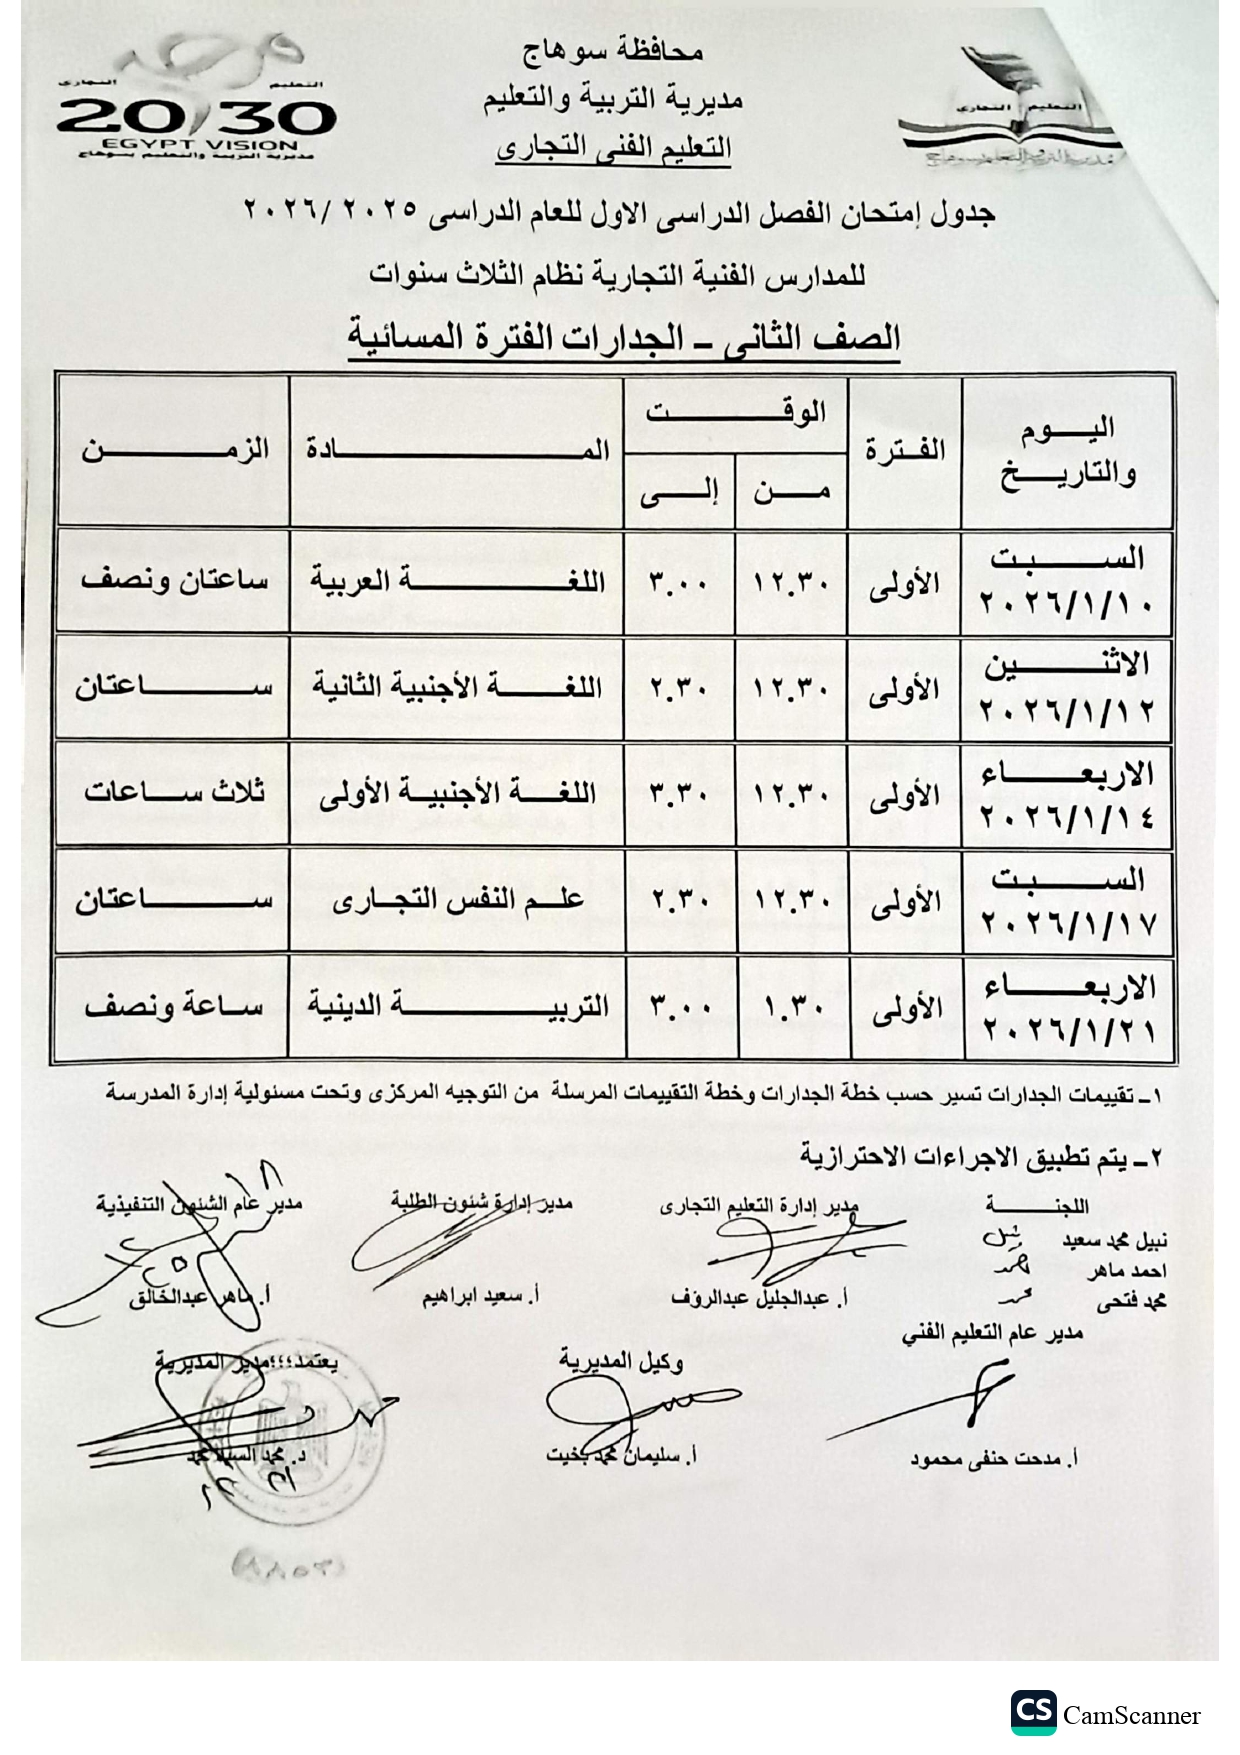 محافظة سوهاج
مديرية التربية والتعليم
التعليم الفنى التجارى
التعليم التجارى
20/30
EGYPT VISION
مديرية التربية والتعليم بسوهاج
التعليم التجارى
مديرية التربية والتعليم بسوهاج
جدول إمتحان الفصل الدراسى الاول للعام الدراسى ٢٠٢٥ /٢٠٢٦
للمدارس الفنية التجارية نظام الثلاث سنوات
الصف الثانى – الجدارات الفترة المسائية
اليوم والتاريخ الفترة الوقت المادة الزمن
من إلى
السبت ٢٠٢٦/١/١٠ الأولى ١٢.٣٠ ٣.٠٠ اللغة العربية ساعتان ونصف
الاثنين ٢٠٢٦/١/١٢ الأولى ١٢.٣٠ ٢.٣٠ اللغة الأجنبية الثانية ساعتان
الاربعاء ٢٠٢٦/١/١٤ الأولى ١٢.٣٠ ٣.٣٠ اللغة الأجنبية الأولى ثلاث ساعات
السبت ٢٠٢٦/١/١٧ الأولى ١٢.٣٠ ٢.٣٠ علم النفس التجارى ساعتان
الاربعاء ٢٠٢٦/١/٢١ الأولى ١.٣٠ ٣.٠٠ التربية الدينية ساعة ونصف
١ـ تقييمات الجدارات تسير حسب خطة الجدارات وخطة التقييمات المرسلة من التوجيه المركزى وتحت مسئولية إدارة المدرسة
٢ـ يتم تطبيق الاجراءات الاحترازية
اللجنة مدير إدارة التعليم التجارى مدير إدارة شئون الطلبة مدير عام الشئون التنفيذية
نبيل محمد سعيد
احمد ماهر
محمد فتحى أ. عبدالجليل عبدالرؤف أ. سعيد ابراهيم أ. ماهر عبدالخالق
مدير عام التعليم الفني وكيل المديرية يعتمد؛؛؛مدير المديرية
أ. مدحت حنفى محمود أ. سليمان محمد بخيت د. محمد السيد محمد
CS CamScanner